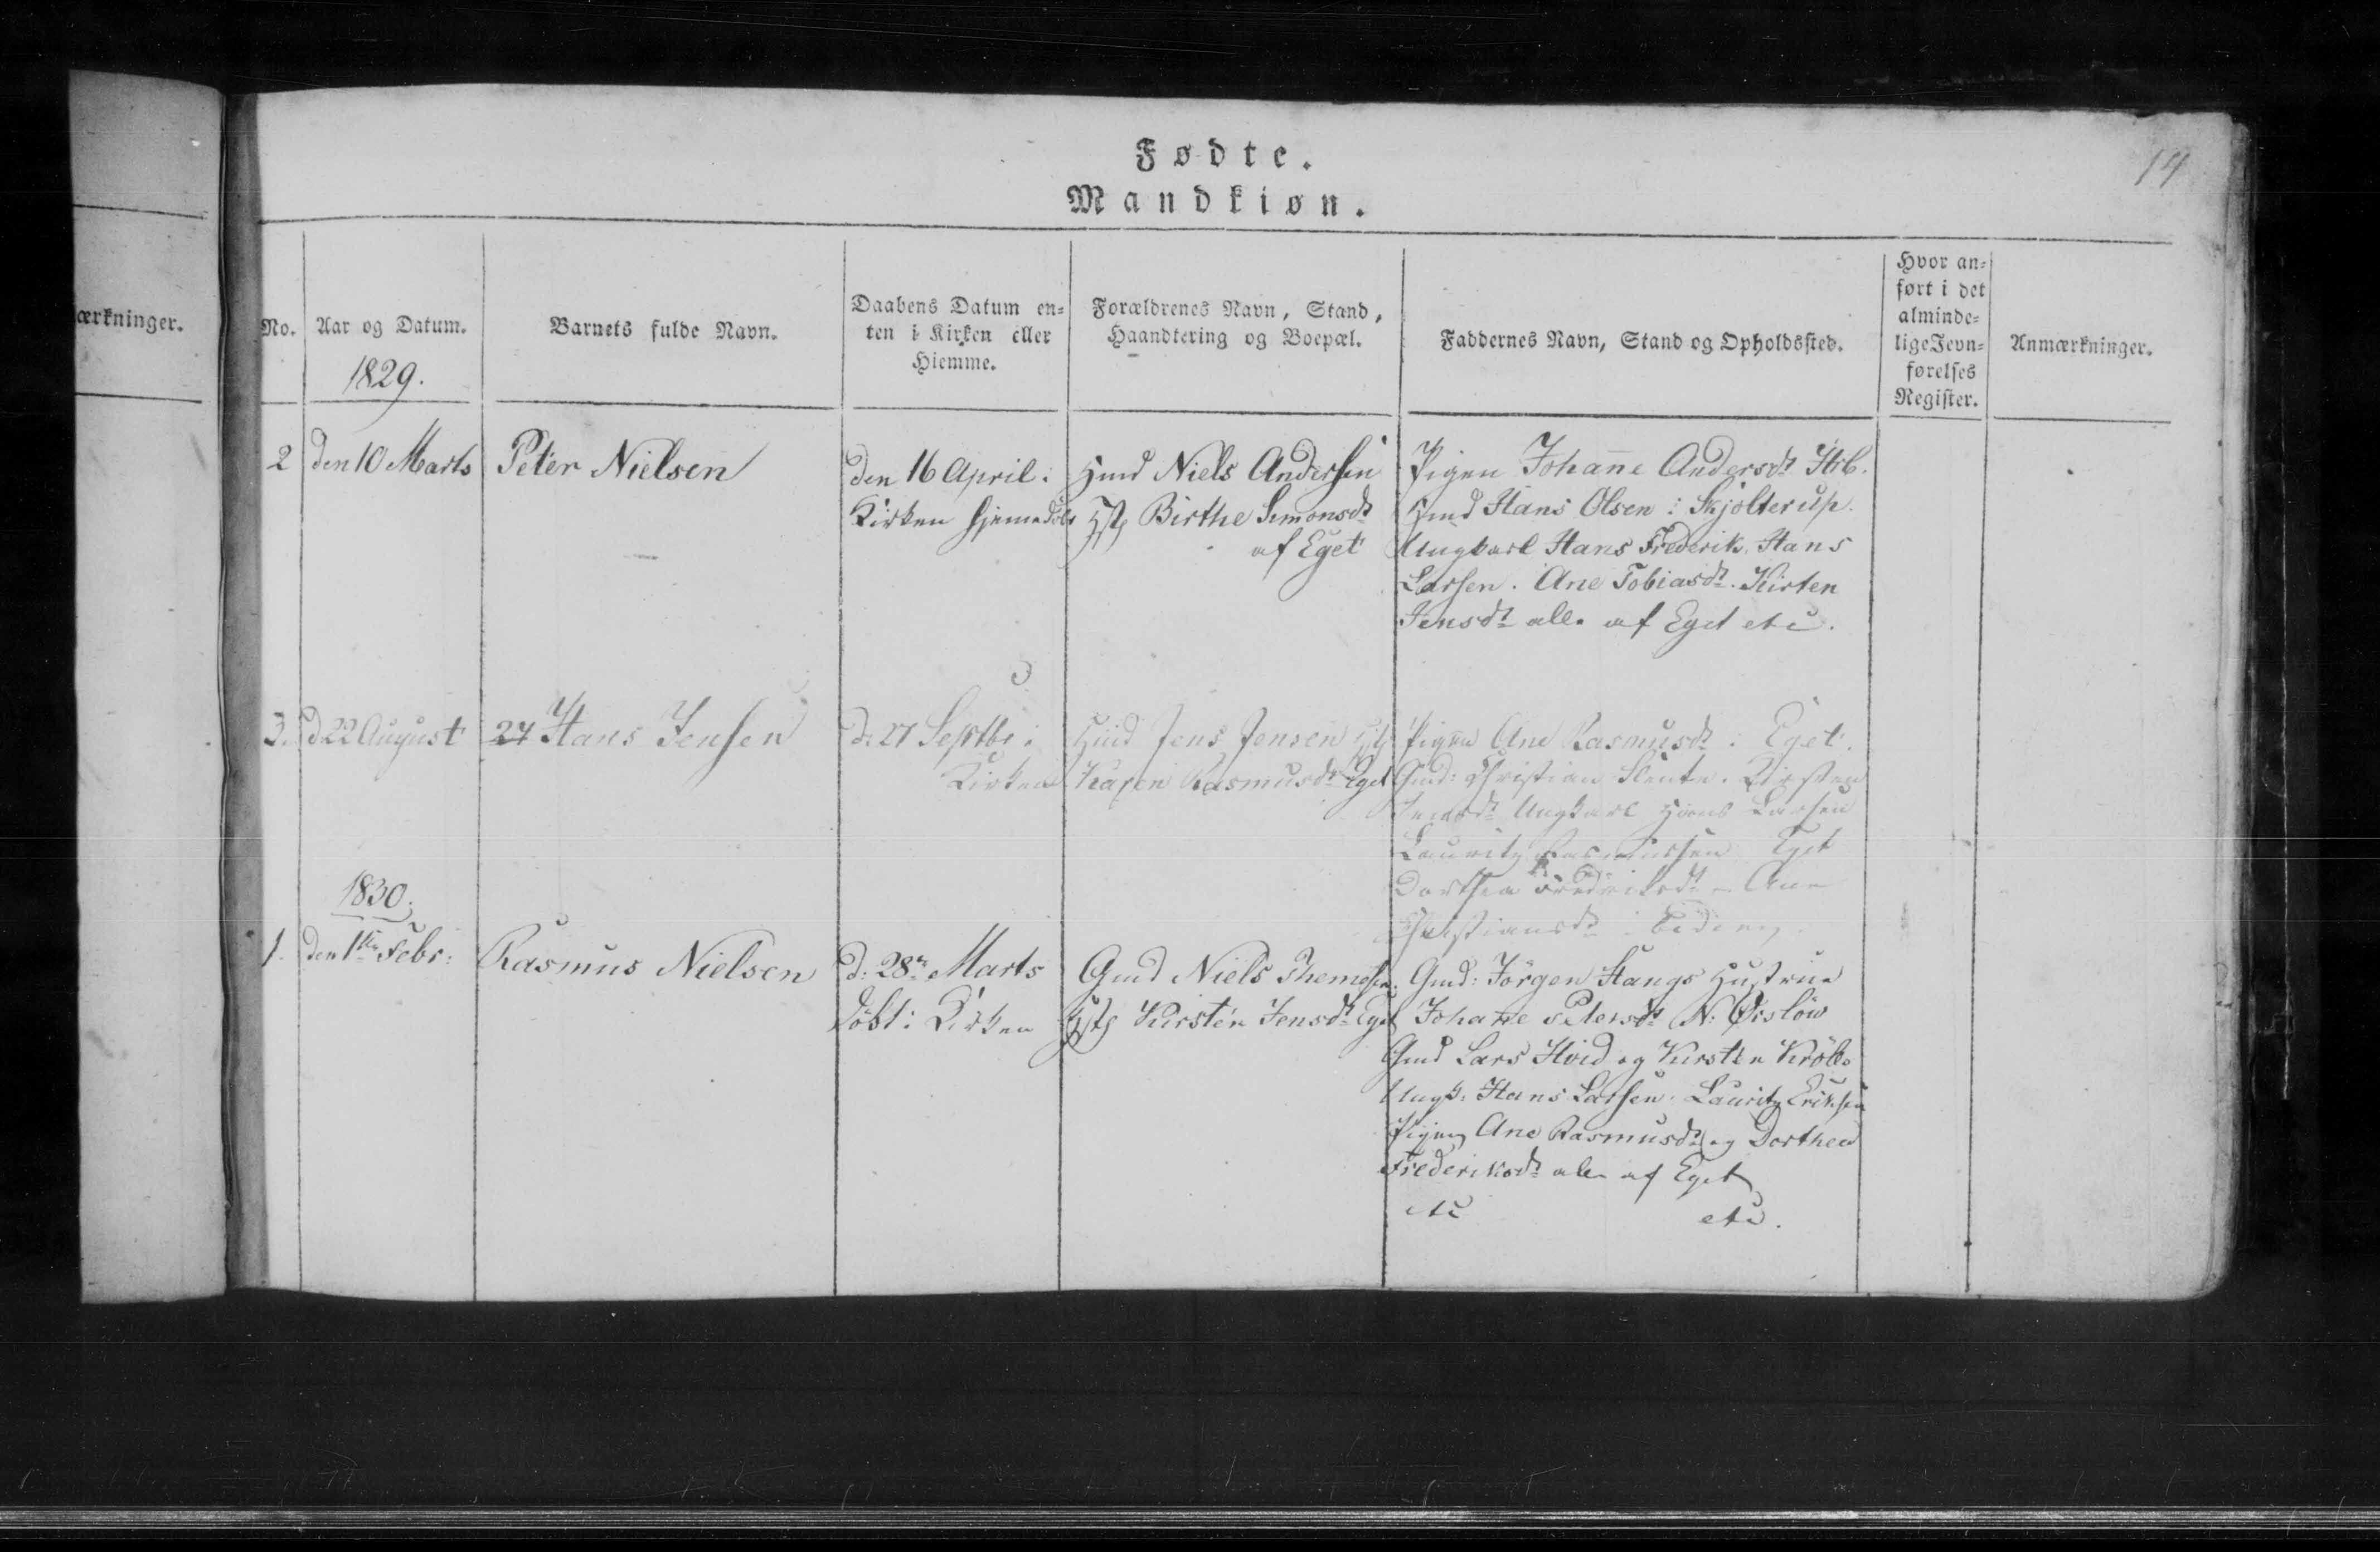 14
Fødte.
Mandkiøn.
ærkninger.
No.
Aar og Datum.
1829.
Barnets fulde Navn.
Daabens Datum en-
ten i Kirken eller
Hiemme.
Forældrenes Navn, Stand,
Haandtering og Boepæl.
Faddernes Navn, Stand og Opholdssted.
Hvor an-
ført i det
alminde-
lige Jevn-
førelses
Register.
Anmærkninger.
2
den 10 Marts
Peter Nielsen
den 16 April i
Kirken hjemedøbt
Huusd Niels Andersen
Hst Birthe Simonsdt
af Eget
Pigen Johanne Andersdt
Huusd Hans Olsen i Skjolterup.
Ungkarl Hans Frederik. Hans
Larsen. Ane Tobiasdt. Kirsten
Jensdt alle af Eget etc.
3.
d. 22 August
27 Hans Jensen
d: 27 Septbr i
Kirken
Huusd Jens Jensen Hst
Karen Rasmusdt Eget
Pigen Ane Rasmusdt i Eget.
Gmd: Christian Kirsten
Jensdt Ungkarl Hans Larsen
Lauritz Rasmussen Eget
Dorthea Frederiksdt Ane
Christiansdt i
1830.
1.
den 1te Febr:
Rasmus Nielsen
d: 28de Marts
døbt i Kirken
Gmd Niels
Hst Kirsten Jensdt Eget
Gmd: Jørgen Stangs Hustrue
Johane Petersdt N: Ørsløv
Gmd Lars Hvid og Kirsten
Ungk: Hans Larsen. Lauritz Eriksen
Pigen Ane Rasmusdt og Dorthea
Frederiksdt alle af Eget
etc etc.